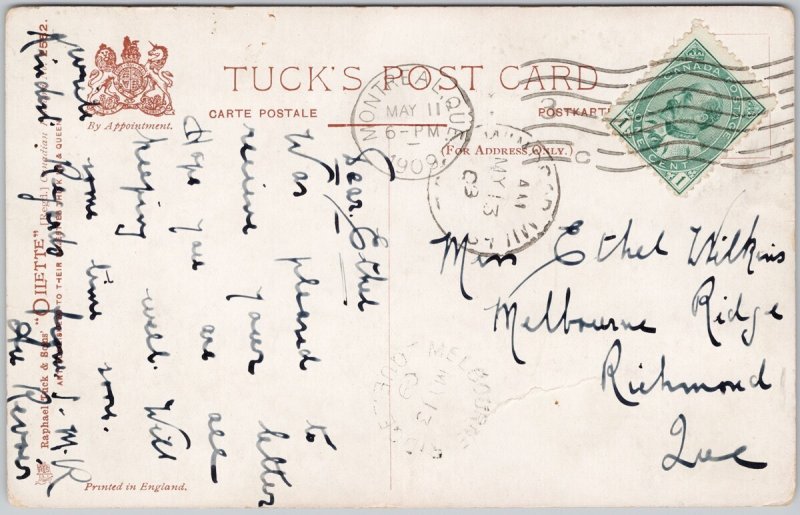 TUCK'S POST CARD
CARTE POSTALE
POSTKARTE
(FOR ADDRESS ONLY.)
By Appointment.
CANADA POSTAGE
ONE CENT
MONTREAL, QUE.
MAY 11
6-PM
1909
AM
MY 13
09
MELBOURNE RIDGE
MY 13
09
QUE
Dear Ethel
Was pleased to
recieve your letter
Hope you are all
keeping well. Will
write some time soon.
Kindest Regards from J. M. R.
Au Revoir
Miss Ethel Wilkins
Melbourne Ridge
Richmond
Que
Raphael Tuck & Sons' "OILETTE" [Regd.] Canadian
2562.
ART PUBLISHERS TO THEIR MAJESTIES THE KING & QUEEN
Printed in England.